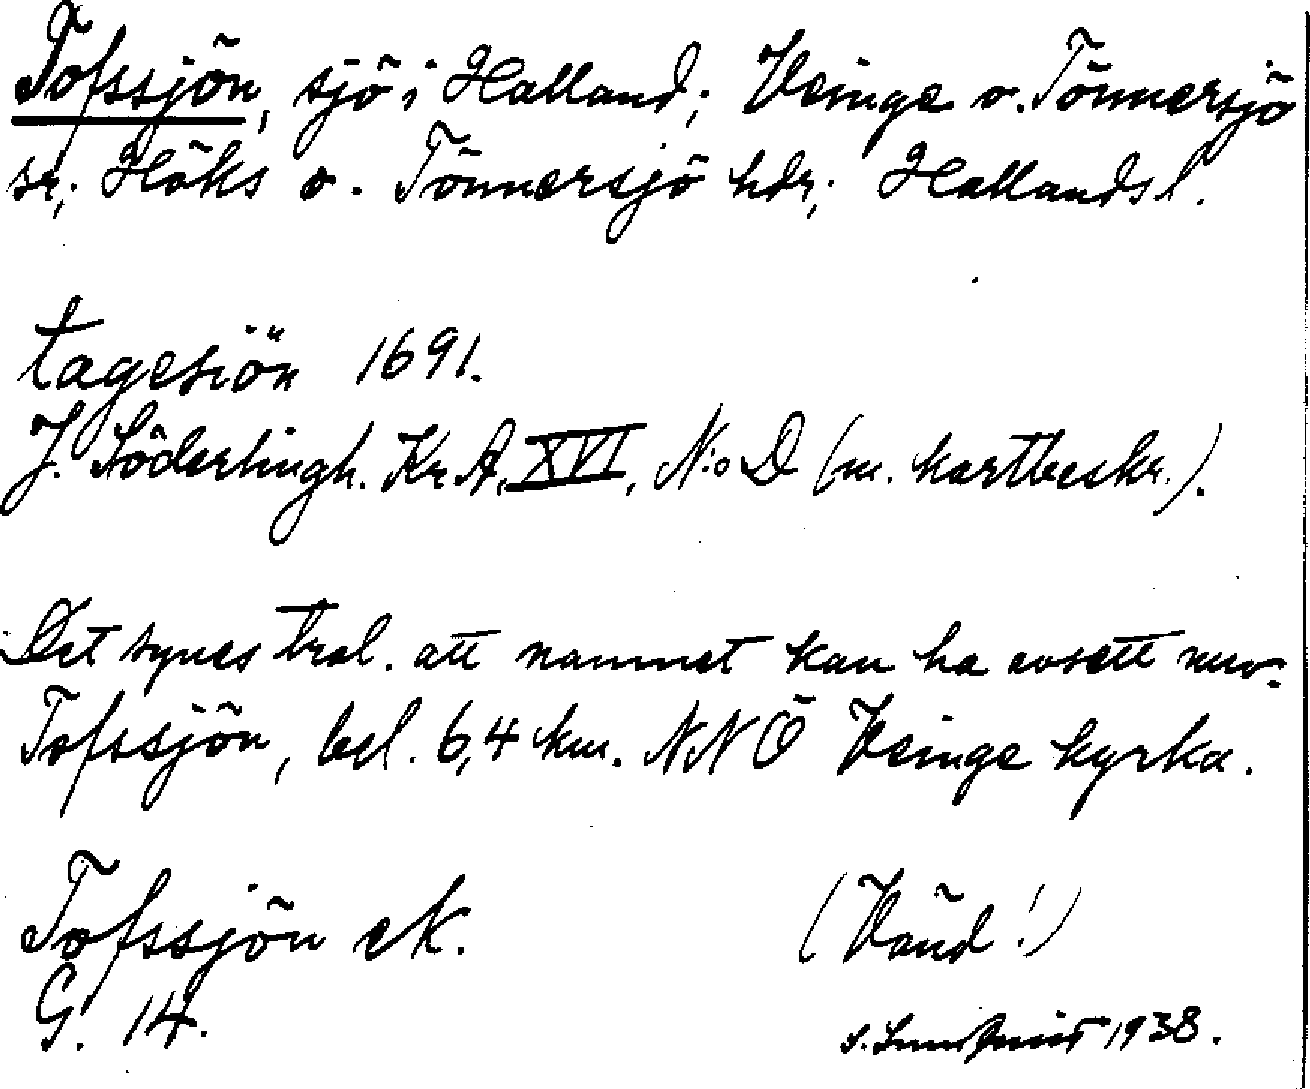 Tofssjön, sjö i Halland; Veinge o. Tönnersjö
sr; Höks o. Tönnersjö hdr; Hallands l.
tagesiön 1691.
J. Söderlingh. Kr.A. XVI, N:o D (m. kartbeskr.).
Det synes trol. att namnet kan ha avsett nuv.
Tofssjön, bel. 6,4 km. NNÖ Veinge kyrka.
Tofssjön ek.
G. 14.
(Vänd!)
S. Lundquist 1938.